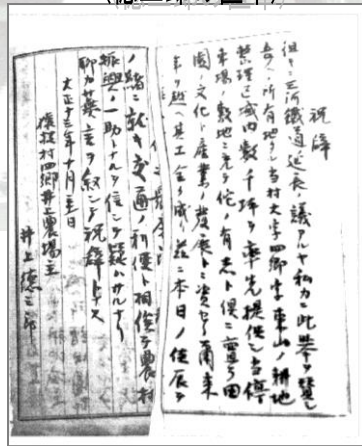 祝辞
但々三河鐵道延長ノ議アルヤ私カニ此挙ヲ賛シ
吾ノ所有地タル当村大字四郷字東山ノ耕地
整理区域内数千坪ヲ率先提供シ当停
車場ノ敷地ニ充テ佗ノ有志ト倶ニ
園ノ文化ト産業ノ發展トニ資セリ爾来
年ヲ越ヘ其工全ク成ル茲ニ本日ノ佳辰ヲ
ノ緒ニ就キ交通ノ利便ト相俟テ農村
振興ノ一助トナルヲ信シテ疑ハサルナリ
聊カ蕪言ヲ叙シテ祝辞トナス
大正十三年十月三十日
猿投村四郷井上農場主
井上徳三郎